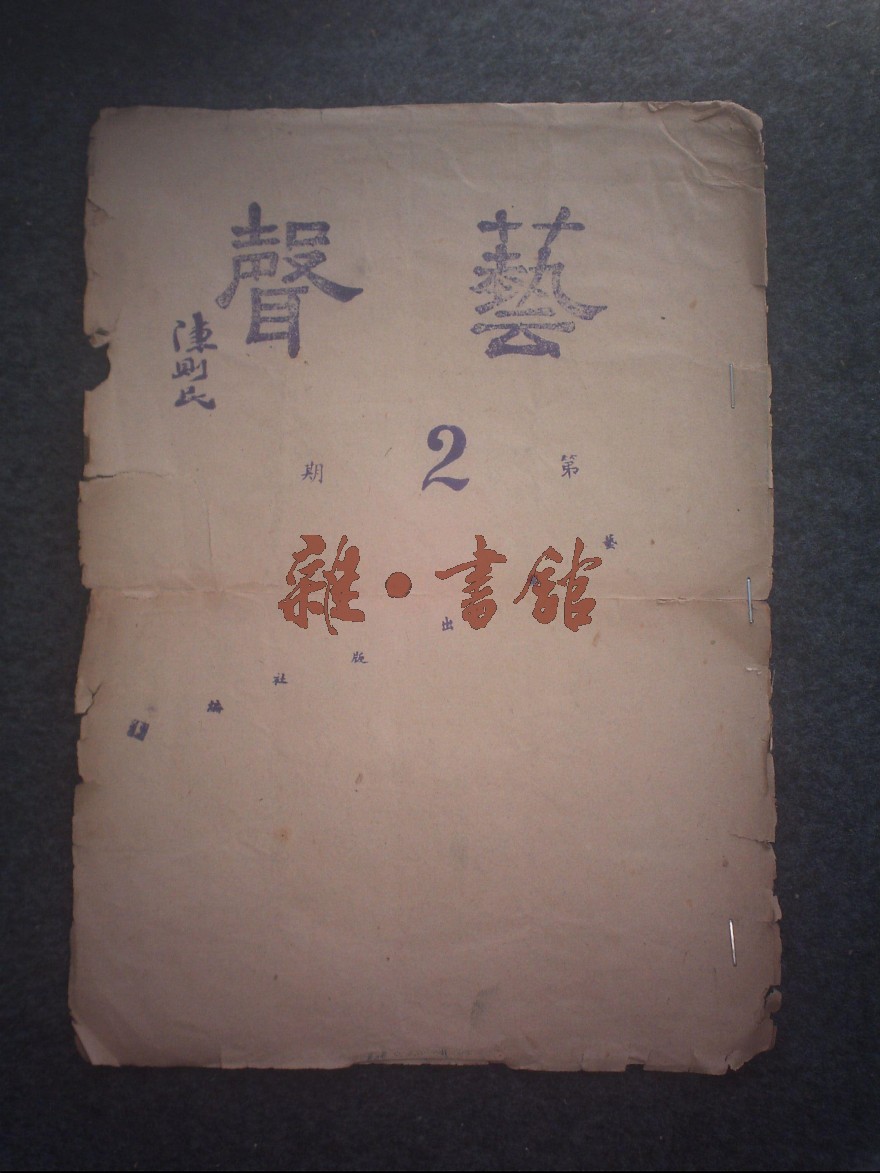 藝聲
陳則民
第2期
雜·書館
藝 出版社編